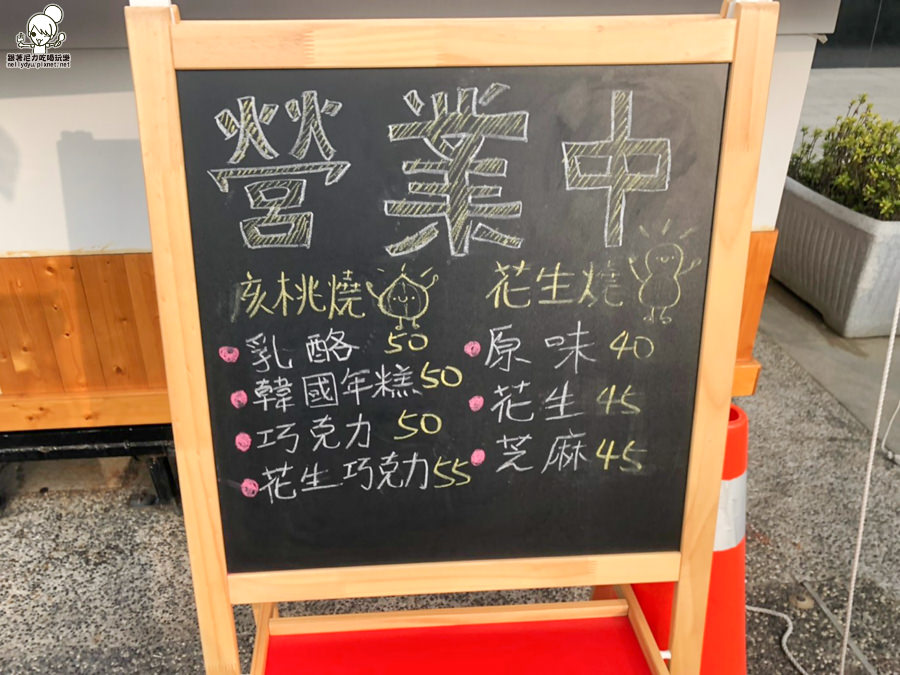 跟著尼力吃喝玩樂
nellydyu.pixnet.net
營業中
核桃燒
乳酪 50
韓國年糕 50
巧克力 50
花生巧克力 55
花生燒
原味 40
花生 45
芝麻 45